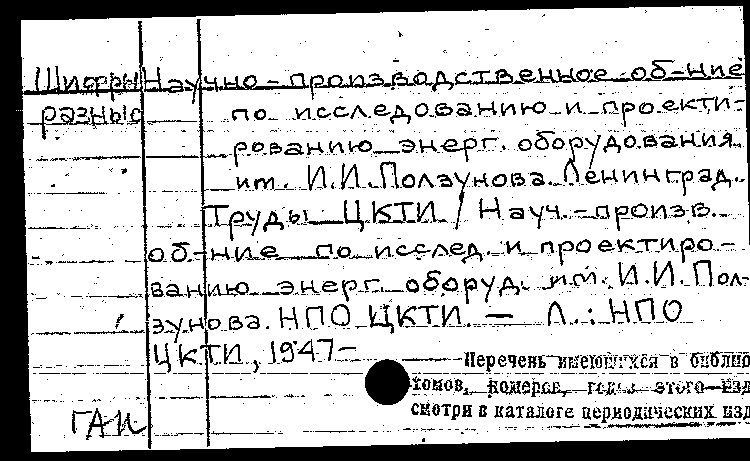 Шифры Научно-производственное об-ние
разные по исследованию и проекти-
рованию энерг. оборудования
им. И.И.Ползунова. Ленинград.
Труды ЦКТИ / Науч.-произв.
об-ние по исслед. и проектиро-
ванию энерг. оборуд. им. И.И.Пол-
зунова. НПО ЦКТИ. — Л.: НПО
ЦКТИ, 1947-
Перечень имеющихся в библио
томов, номеров, годов этого изд
смотри в каталоге периодических изд
ГАИ